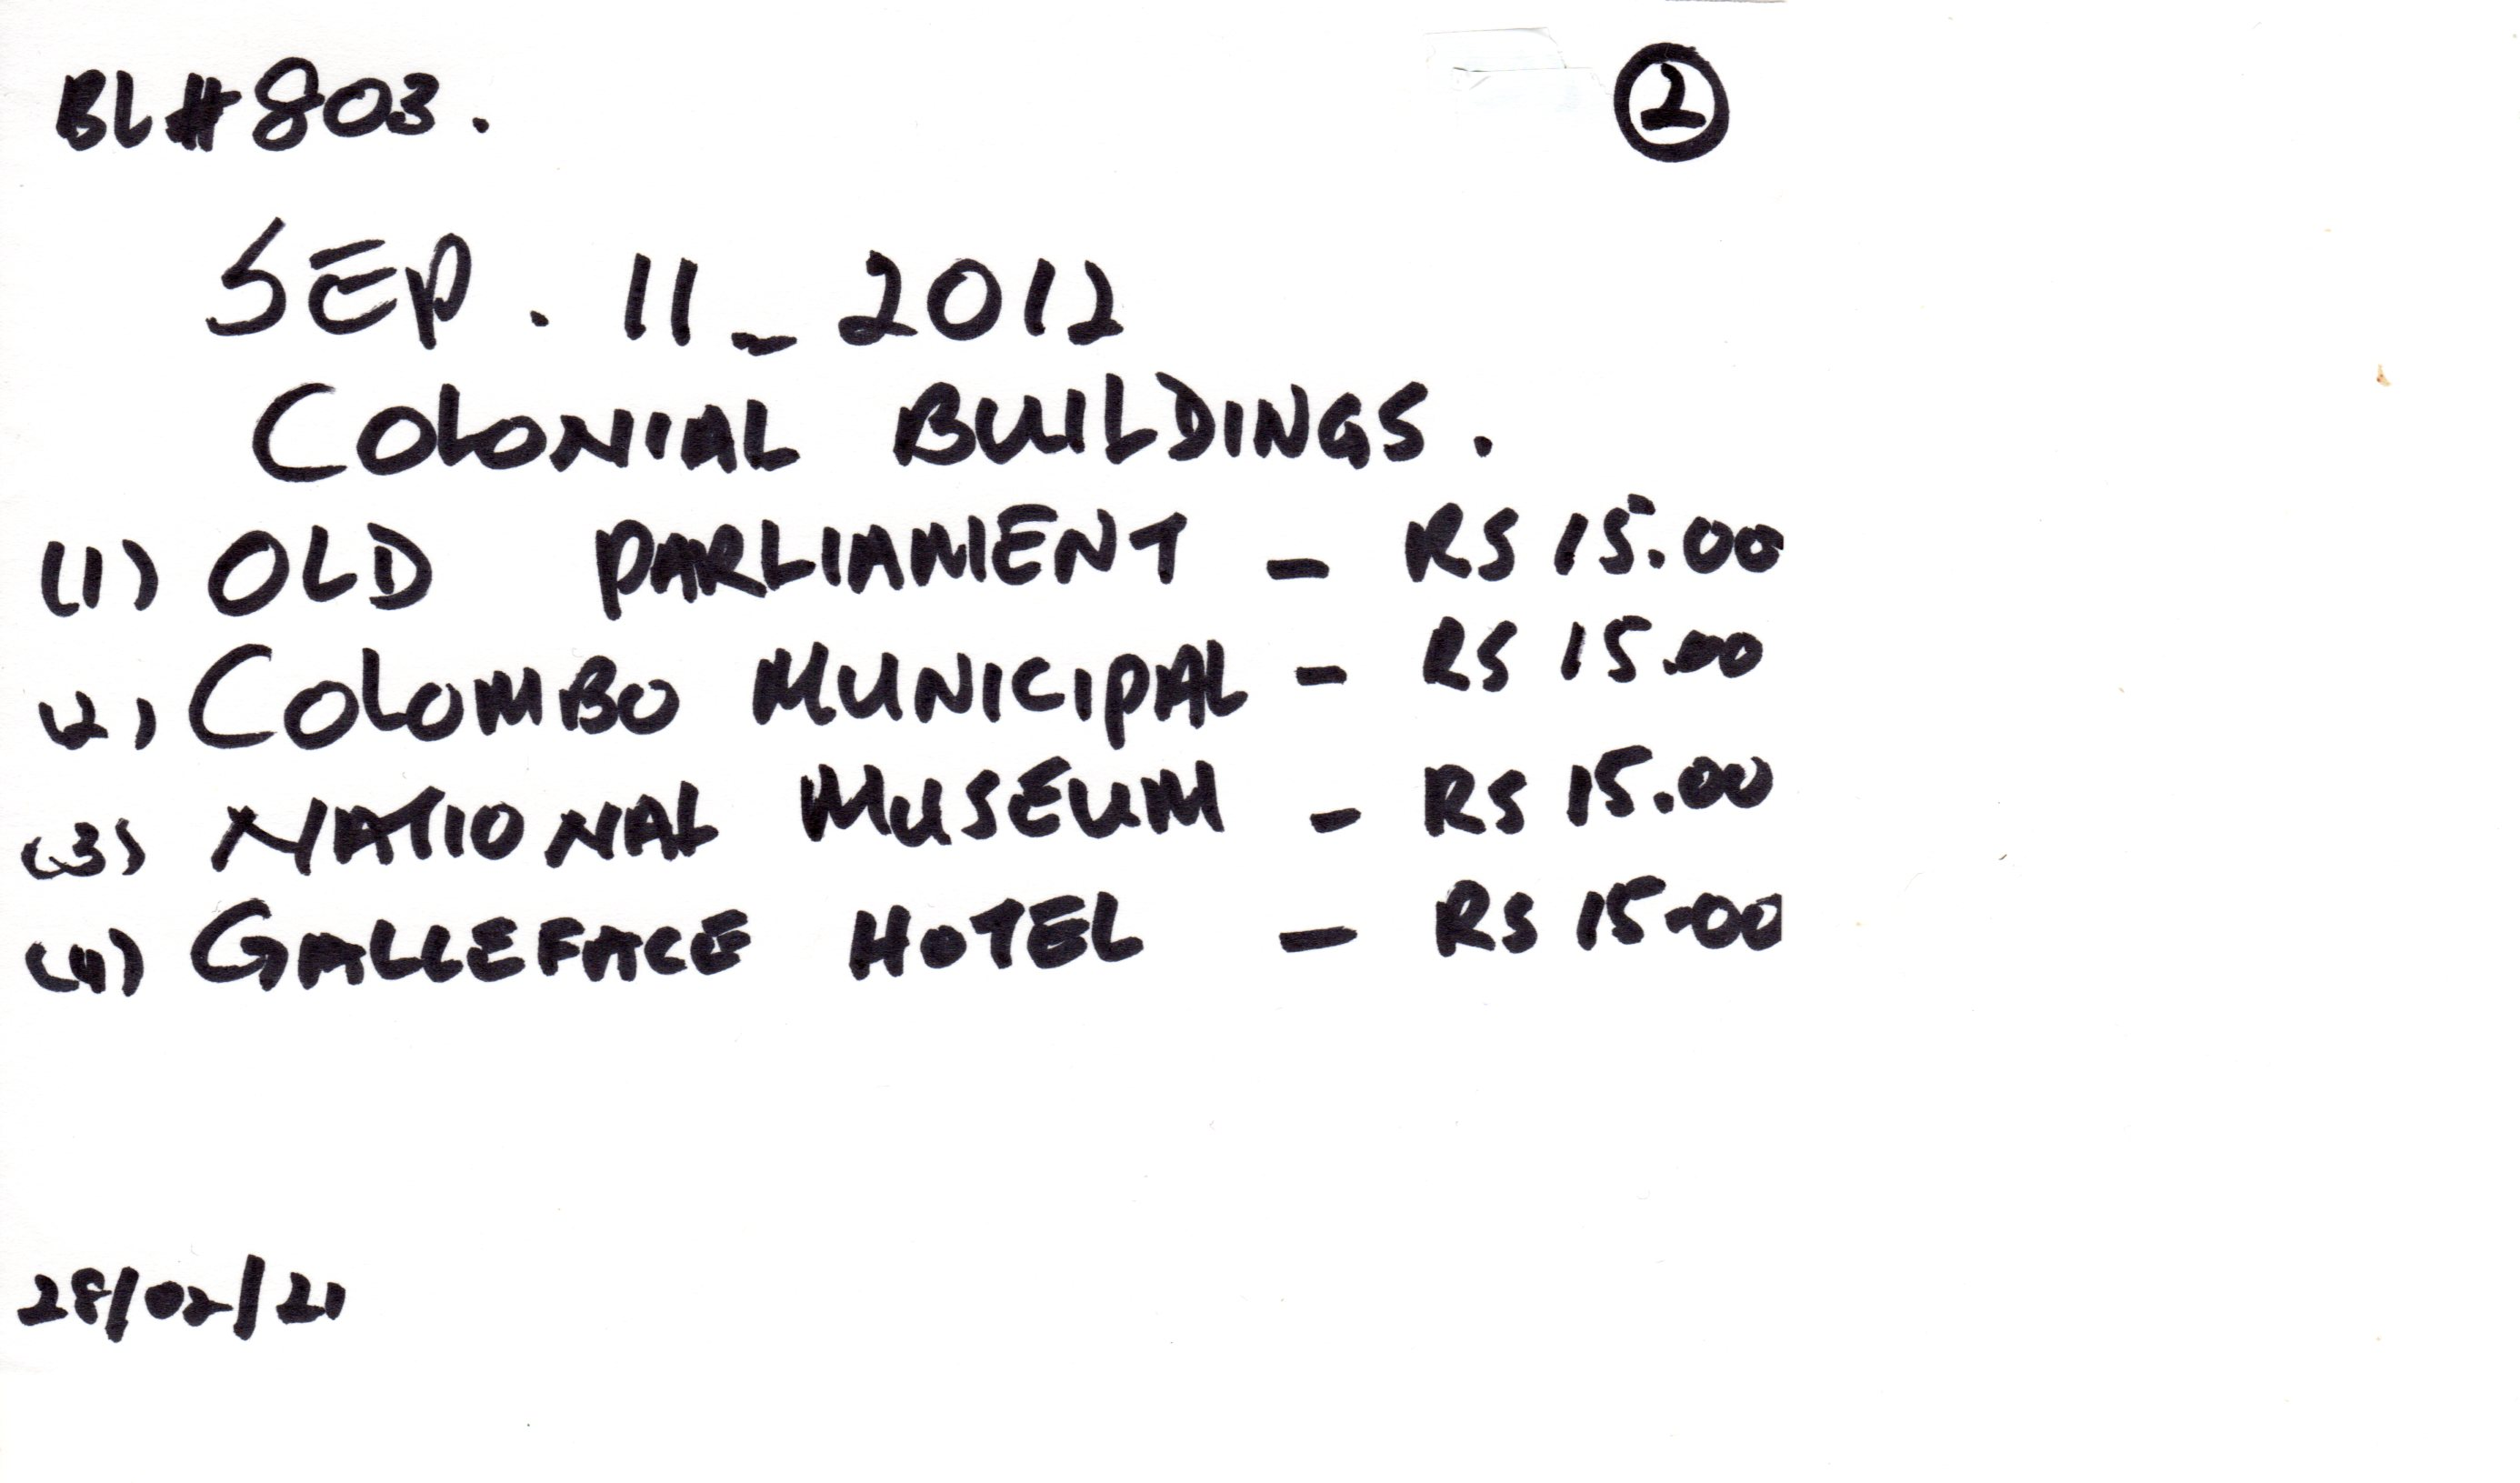 BL#803. 2
SEP. 11_2012
COLONIAL BUILDINGS.
(1) OLD PARLIAMENT - RS 15.00
(2) COLOMBO MUNICIPAL - RS 15.00
(3) NATIONAL MUSEUM - RS 15.00
(4) GALLEFACE HOTEL - RS 15-00
28/02/21